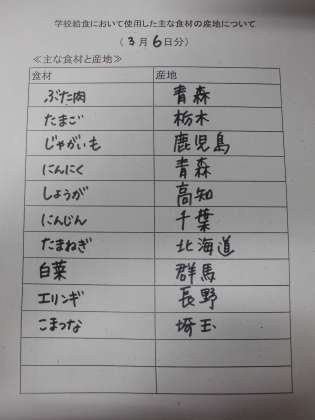 学校給食において使用した主な食材の産地について
（3月6日分）
≪主な食材と産地≫
食材 産地
ぶた肉 青森
たまご 栃木
じゃがいも 鹿児島
にんにく 青森
しょうが 高知
にんじん 千葉
たまねぎ 北海道
白菜 群馬
エリンギ 長野
こまつな 埼玉